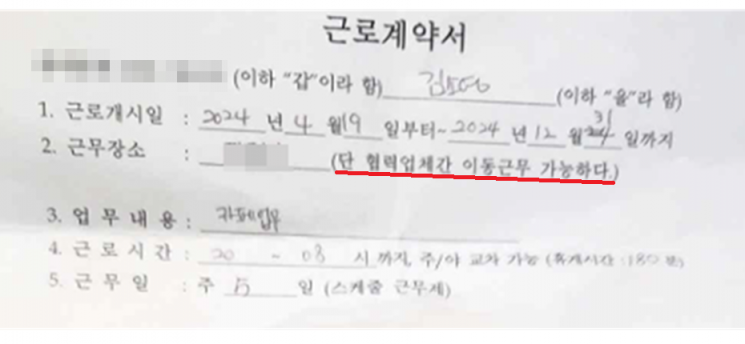 근로계약서
(이하 "갑"이라 함) (이하 "을"라 함)
1. 근로개시일 : 2024 년 4 월 19 일부터~ 2024 년 12 월 31 일까지
2. 근무장소 : (단 협력업체간 이동근무 가능하다.)
3. 업 무 내 용 : 카페업무
4. 근 로 시 간 : 20 ~ 08 시 까지, 주/야 교차 가능 (휴게시간 :180 분)
5. 근 무 일 : 주 5 일 (스케줄 근무제)